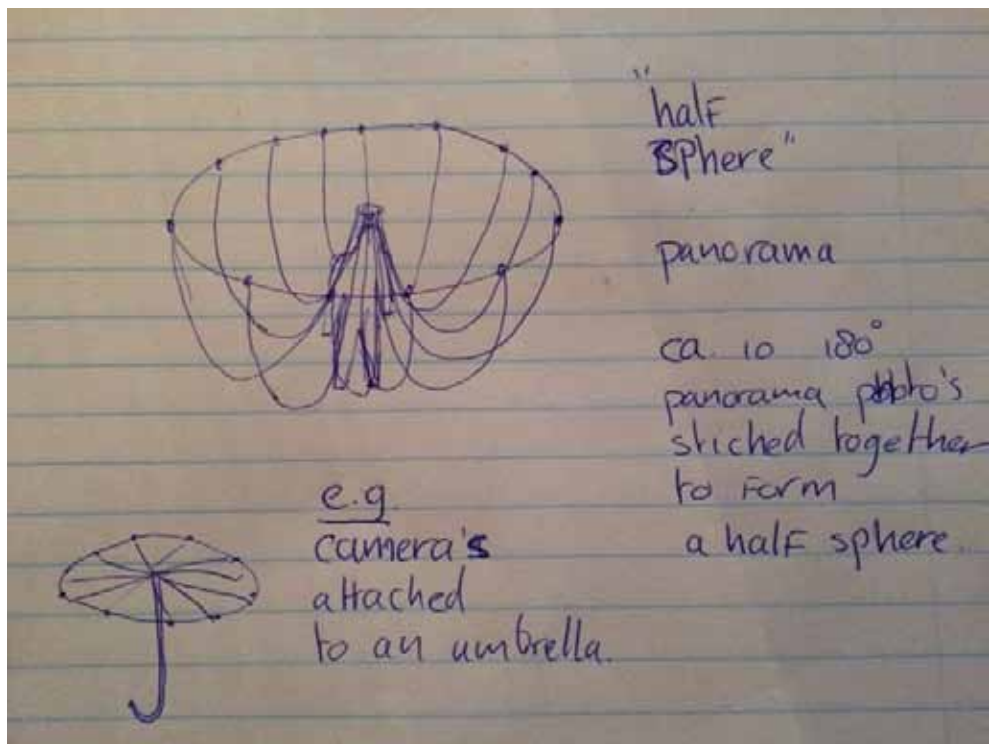 "half
sphere"
panorama
ca. 10 180°
panorama photo's
stiched together
to form
a half sphere.
e.g.
camera's
attached
to an umbrella.